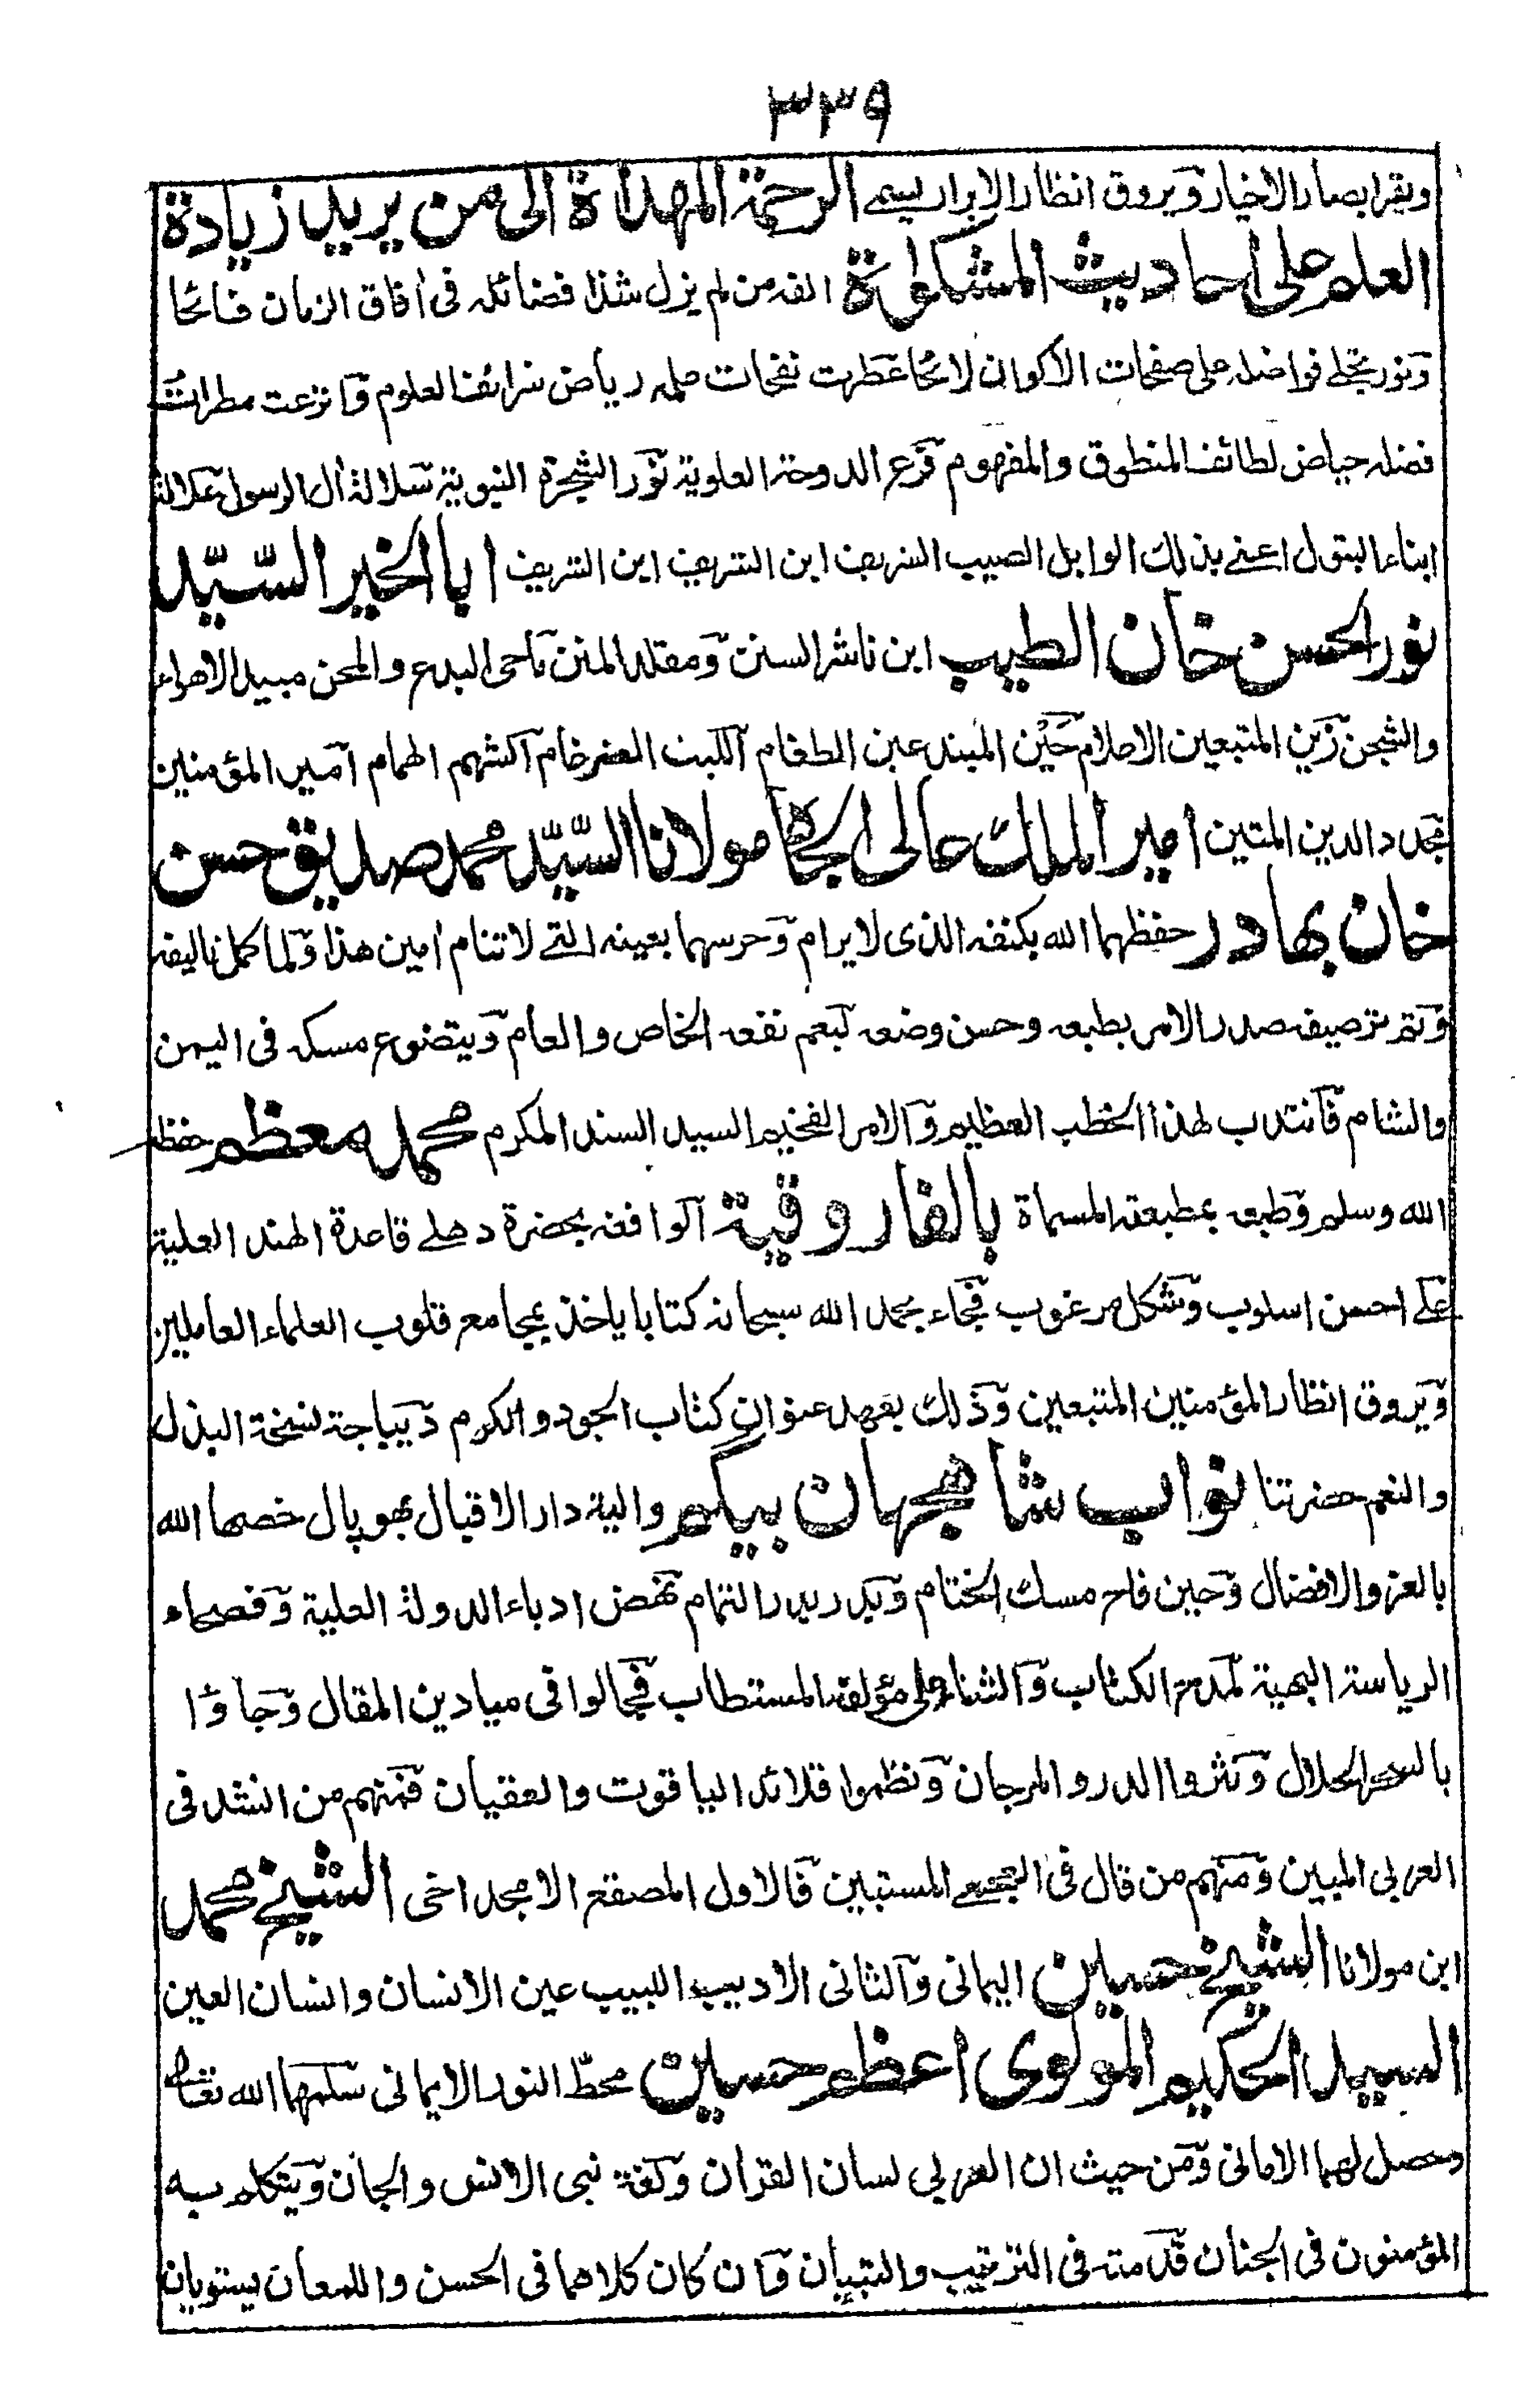 ٣٣٩
ويقر ابصار الاخيار ويروق انظار الابرار يسمى الرحمة المهداة الى من يريد زيادة
العلم على احاديث المشكوة الفه من لم يزل شذا فضائله فى آفاق الزمان فائحا
ونور تجلى فواضله على صفحات الاكوان لائحا عطرت نفحات علمه رياض شرائف العلوم واترعت
فضله حياض لطائف المنطوق والمفهوم فرع الدوحة العلوية نور الشجرة النبوية سلالة آل الرسول
ابناء البتول اعنى بذلك الوابل الصيب الشريف ابن الشريف ابن الشريف ابا الخير السيّد
نور الحسن خان الطيب ابن ناشر السنن ومقلد المنن ماحى البدع والمحن مبيد الاهواء
والشجن زين المتبعين الاعلام حَيْن المبتدعين الطغام الليث الضرغام الشهم الهمام امير المؤمنين
مجدد الدين المتين امير الملك عالى الجاه مولانا السيّد محمد صديق حسن
خان بهادر حفظهما الله بكنفه الذى لا يرام وحرسهما بعينه التے لا تنام امين هذا ولما كمل تاليفه
وتم ترصيفه صدر الامر بطبعه وحسن وضعه ليعم نفعه الخاص والعام ويتضوع مسكه فى اليمن
والشام فانتدب لهذا الخطب العظيم والامر الفخيم السيد السند المكرم محمد معظم حفظه
الله وسلم وطبعه بمطبعته المسماة بالفاروقية الواقعه بحضرة دهلے قاعدة الهند العلية
على احسن اسلوب وشكل مرغوب فجاء بحمد الله سبحانه كتابا ياخذ بمجامع قلوب العلماء العاملين
ويروق انظار المؤمنين المتبعين وذلك بعهد عنوان كتاب الجود والكرم ديباجة نسخة البذل
والنعم حضرتنا نواب شاهجهان بيگم والية دار الاقبال بهوپال خصها الله
بالعز والافضال وحين فاح مسك الختام وبدر بدر التمام نهض ادباء الدولة العلية وفصحاء
الرياسة البهية لمدح الكتاب والثناء على مؤلفه المستطاب فجالوا فى ميادين المقال وجاؤا
بالسحر الحلال ونثروا الدر والمرجان ونظموا قلائد الياقوت والعقيان فمنهم من انشد فى
العربى المبين ومنهم من قال فى العجمى المستبين فالاول المصقع الامجد اخى الشيخ محمد
ابن مولانا الشيخ حسين اليمانى والثانى الاديب اللبيب عين الانسان وانسان العين
السيد الحكيم المولوى اعظم حسين محطّ النور الايمانى سلمهما الله تعالى
وحصل لهما الامانى ومن حيث ان العربى لسان القران ولغة نبى الانس والجان ويتكلم به
المؤمنون فى الجنان قدمته فى الترتيب والتبيان وان كان كلاهما فى الحسن واللمعان يستويان